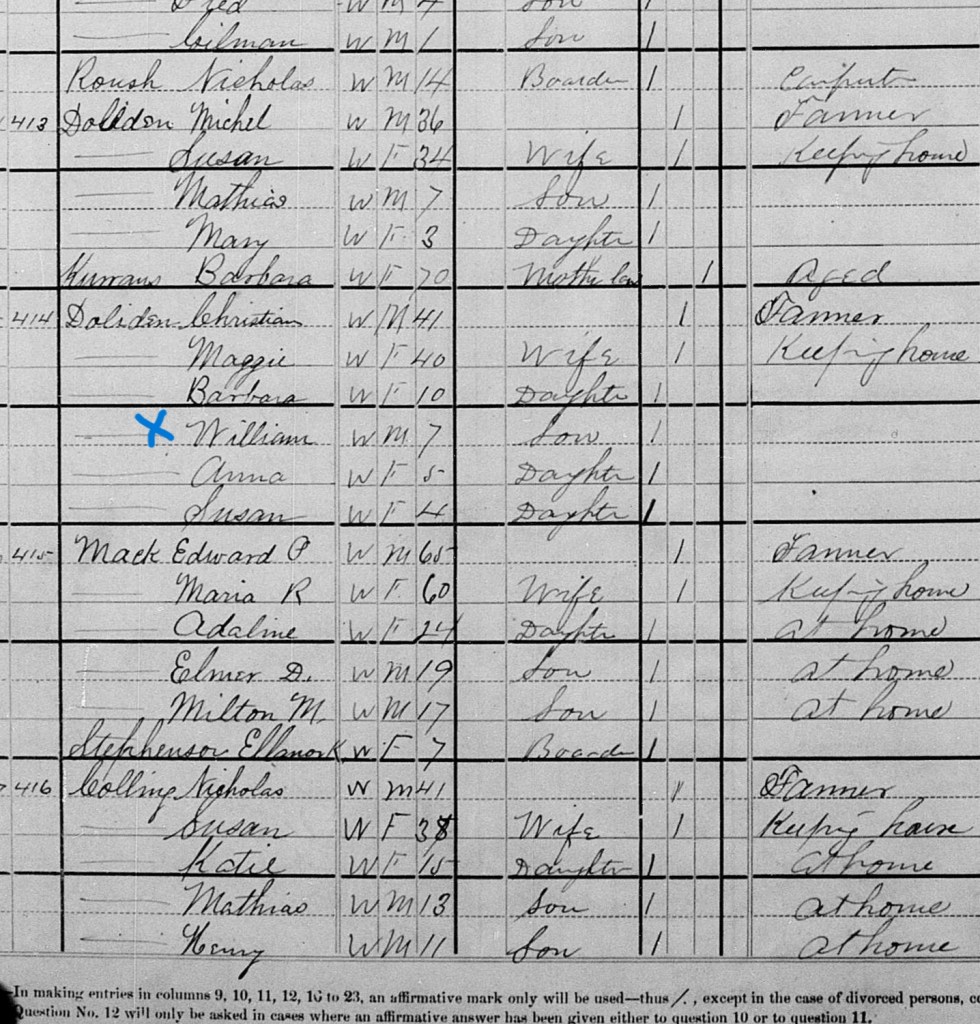 Fred W M 4 Son 1
Gilman W M 1 Son 1
Roush Nicholas W M 14 Boarder 1
413 Doliden Michel W M 36 1 Farmer
— Susan W F 34 Wife 1 Keeping home
— Mathias W M 7 Son 1
— Mary W F 3 Daughter 1
Barbara W F 70 Moth law 1 Aged
414 Doliden Christian W M 41 1 Farmer
— Maggie W F 40 Wife 1 Keeping home
— Barbara W F 10 Daughter 1
— X William W M 7 Son 1
— Anna W F 5 Daughter 1
— Susan W F 4 Daughter 1
415 Mack Edward P W M 65 1 Farmer
— Maria R W F 60 Wife 1 Keeping home
— Adaline W F 24 Daughter 1 at home
— Elmer D. W M 19 Son 1 at home
— Milton M. W M 17 Son 1 at home
Stephenson Ellanor K W F 7 Boarder 1
416 Colling Nicholas W M 41 1 Farmer
— Susan W F 38 Wife 1 Keeping house
— Katie W F 15 Daughter 1 at home
— Mathias W M 13 Son 1 at home
— Henry W M 11 Son 1 at home
In making entries in columns 9, 10, 11, 12, 16 to 23, an affirmative mark only will be used—thus /. , except in the case of divorced persons,
Question No. 12 will only be asked in cases where an affirmative answer has been given either to question 10 or to question 11.